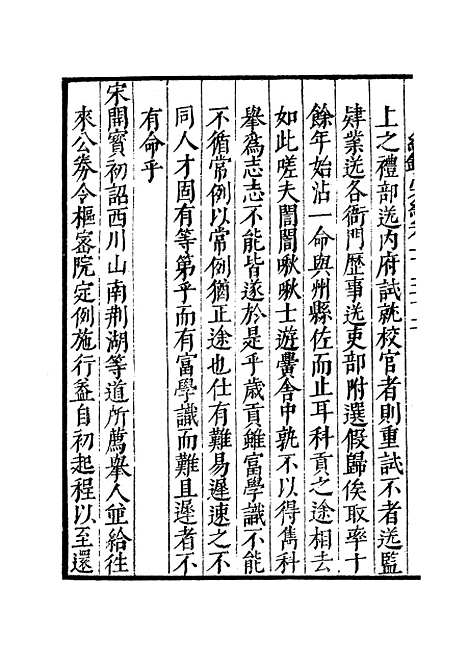 上之禮部送内府試就校官者則重試不者送監
肄業送各衙門歷事送吏部附選假歸俟取率十
餘年始沾一命與州縣佐而止耳科貢之途相去
如此嗟夫誾誾啾啾士遊黌舍中孰不以得雋科
舉爲志志不能皆遂於是乎歲貢雖富學識不能
不循常例以常例猶正途也仕有難易遲速之不
同人才固有等第乎而有富學識而難且遲者不
有命乎
宋開寶初詔西川山南荆湖等道所薦舉人並給往
來公券令樞密院定例施行葢自初起程以至還